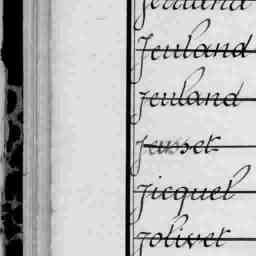 Jeuland
Jeuland
Jeuland
Jeusset
Jicquel
Jolivet